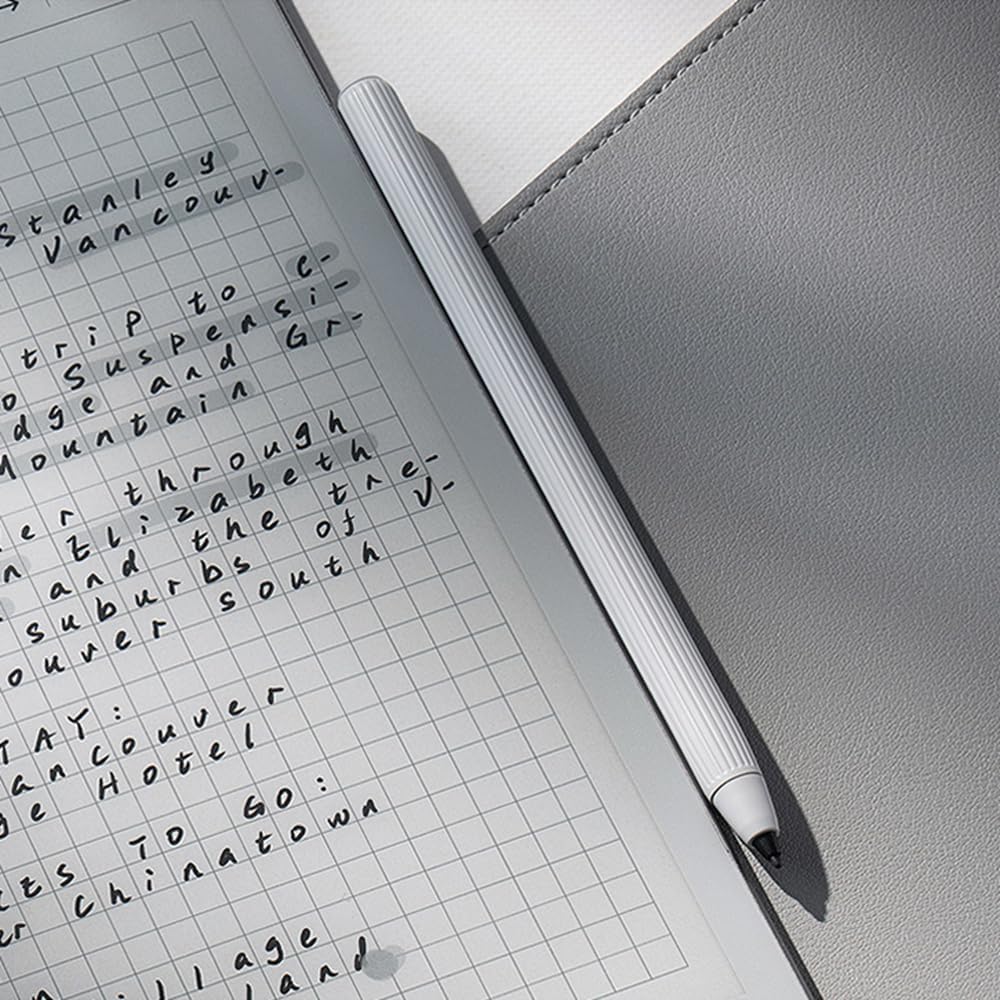 Stanley
Vancouv-
trip to C-
o Suspensi-
dge and Gr-
Mountain
er through
n Elizabeth
and the tre-
suburbs of V-
ouver south
TAY:
ancouver
ge Hotel
TO GO:
er Chinatown
illage
land